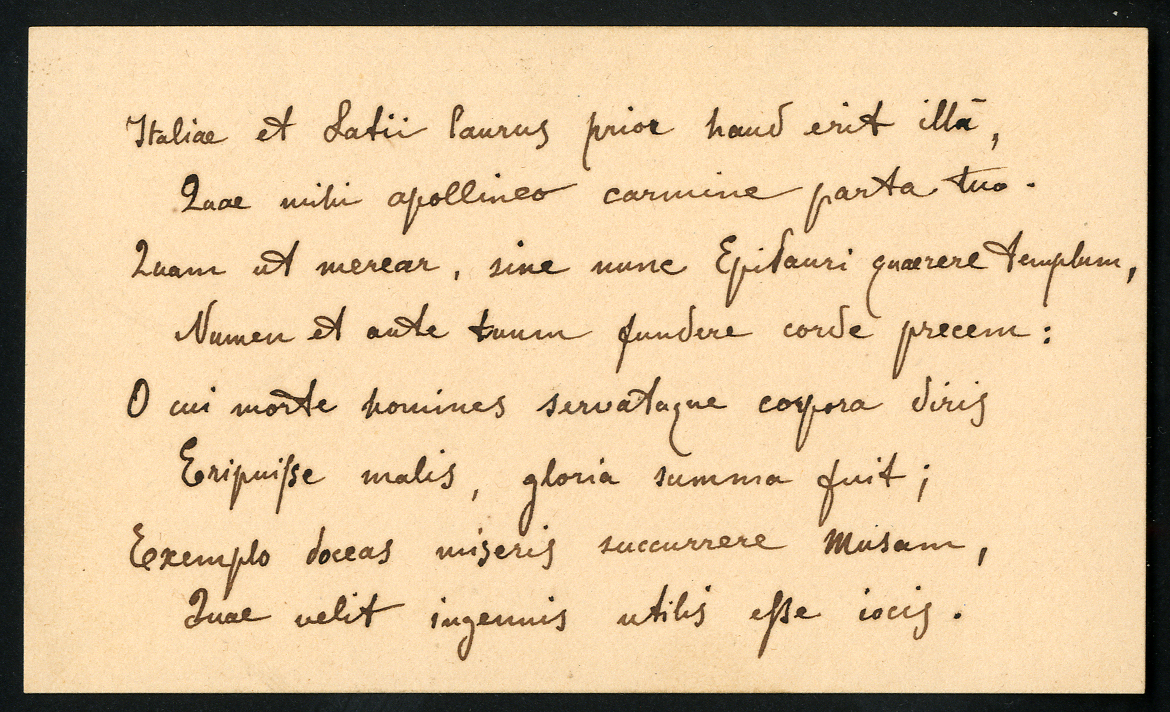 Italiae et Latii laurus prior haud erit illā,
Quae mihi apollineo carmine parta tuo.
Quam ut merear, sine nunc Epidauri quaerere templum,
Numen et ante tuum fundere corde precem:
O cui morte homines servataque corpora diris
Eripuiſse malis, gloria summa fuit;
Exemplo doceas miseris succurrere Musam,
Quae velit ingenuis utilis eſse iocis.